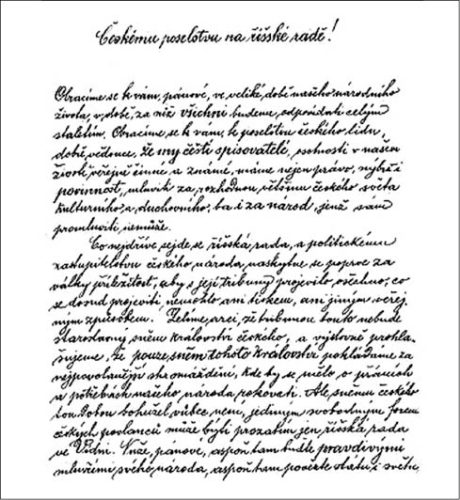 Českému poselstvu na říšské radě!
Obracíme se k vám, pánové, ve veliké době našeho národního
života, v době, za niž všichni budeme odpovídati celým
staletím. Obracíme se k vám, k poselstvu českého lidu,
dobře vědouce, že my čeští spisovatelé, osobnosti v našem
životě veřejně činné a známé, máme nejen právo, nýbrž i
povinnost, mluvit za rozhodnou většinu českého světa
kulturního a duchovního, ba i za národ, jenž sám
promluviti nemůže.
Co nejdříve sejde se říšská rada, a politickému
zastupitelstvu českého národa naskytne se poprvé za
války příležitost, aby s její tribuny projevilo všechno, co
se dosud projeviti nemohlo ani tiskem, ani jiným veřej-
ným způsobem. Želíme arci, že tribunou touto nebude
starodávný sněm království českého, a výslovně prohla-
šujeme, že pouze sněm tohoto království pokládáme za
nejpovolanější shromáždění, kde by se mělo o právech
a potřebách našeho národa rokovati. Ale sněmu českého
tou dobou bohužel vůbec není, jediným svobodným forem
českých poslanců může býti prozatím jen říšská rada
ve Vídni. Nuže, pánové, aspoň tam buďte pravdivými
mluvčími svého národa, aspoň tam povězte státu i světu,